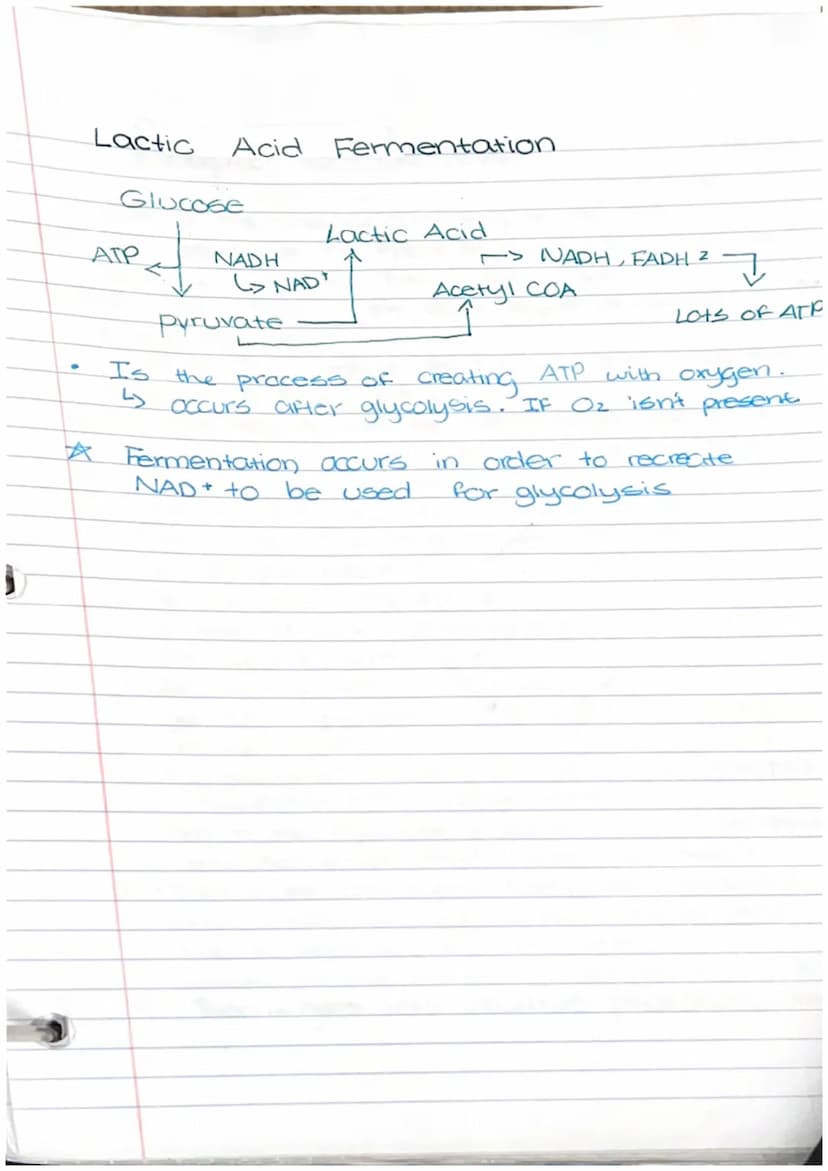 Lactic Acid Fermentation
Glucose
Lactic Acid
ATP NADH → NADH, FADH 2
↳ NAD+ Acetyl COA
Pyruvate Lots of ATP
• Is the process of creating ATP with oxygen.
↳ occurs after glycolysis. IF O2 isn't present
☆ Fermentation occurs in order to recreate
NAD+ to be used for glycolysis